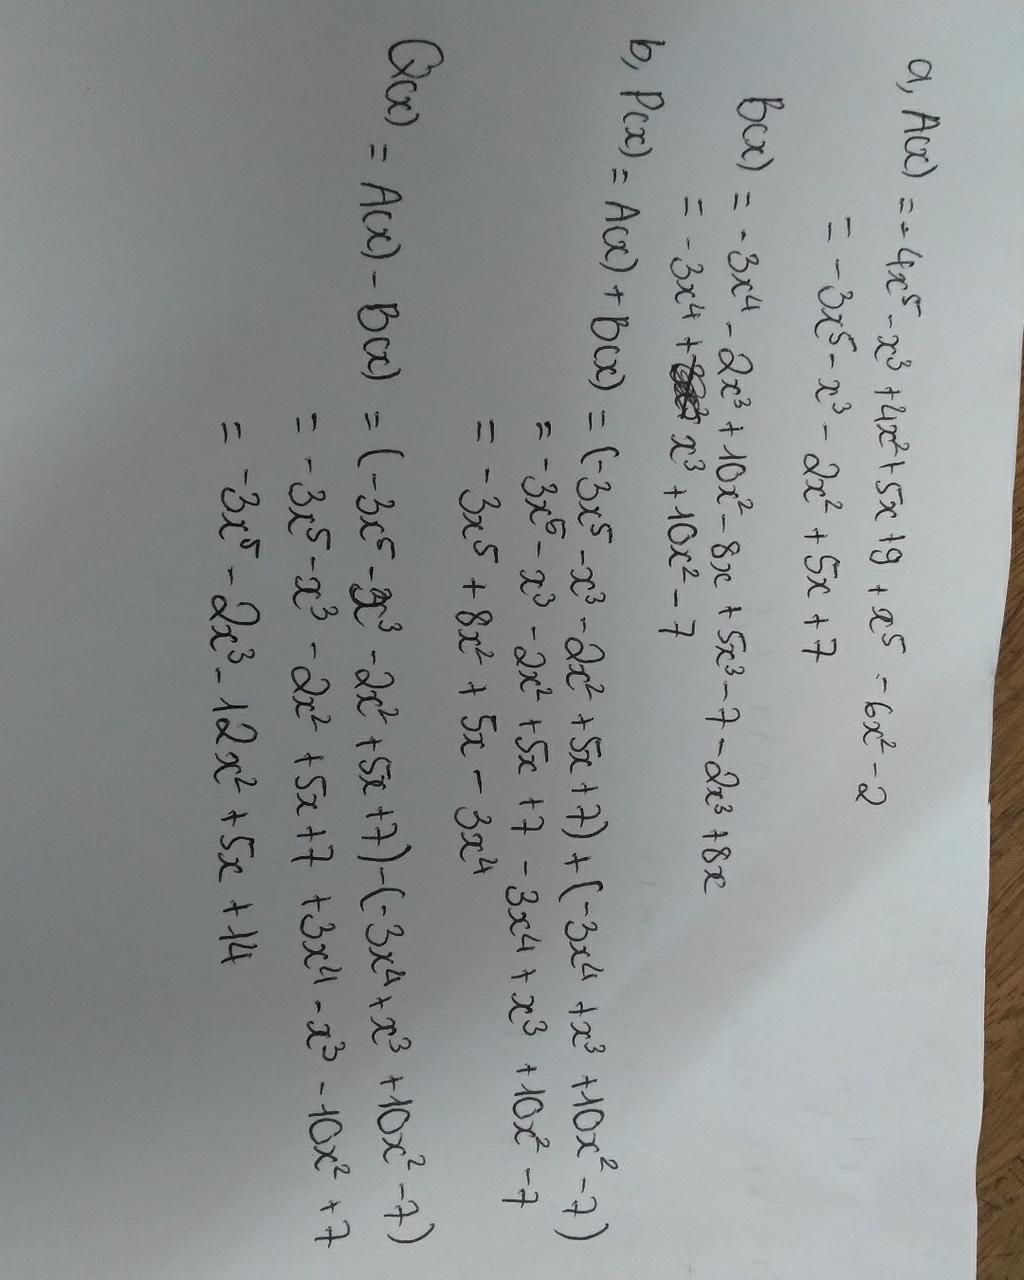 a, A(x) = -4x⁵ - x³ + 4x² + 5x + 9 + x⁵ - 6x² - 2
= -3x⁵ - x³ - 2x² + 5x + 7
B(x) = -3x⁴ - 2x³ + 10x² - 8x + 5x³ - 7 - 2x³ + 8x
= -3x⁴ + x³ + 10x² - 7
b, P(x) = A(x) + B(x) = (-3x⁵ - x³ - 2x² + 5x + 7) + (-3x⁴ + x³ + 10x² - 7)
= -3x⁵ - x³ - 2x² + 5x + 7 - 3x⁴ + x³ + 10x² - 7
= -3x⁵ + 8x² + 5x - 3x⁴
Q(x) = A(x) - B(x) = (-3x⁵ - x³ - 2x² + 5x + 7) - (-3x⁴ + x³ + 10x² - 7)
= -3x⁵ - x³ - 2x² + 5x + 7 + 3x⁴ - x³ - 10x² + 7
= -3x⁵ - 2x³ - 12x² + 5x + 14